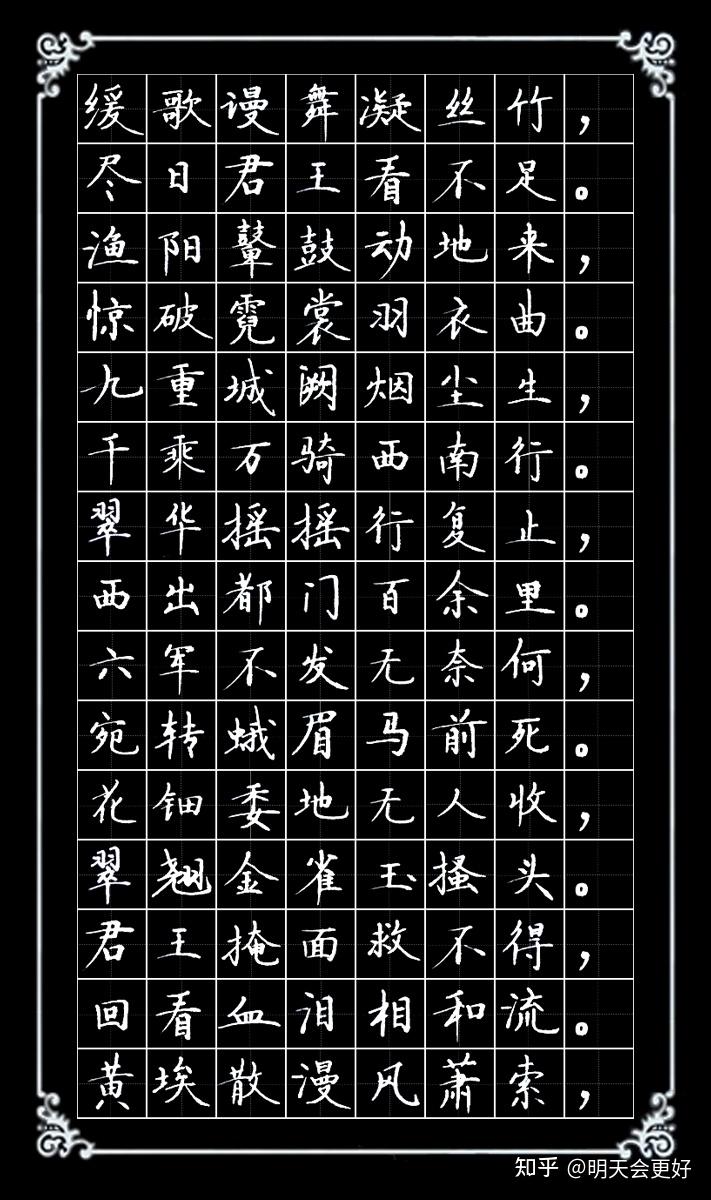 缓歌谩舞凝丝竹，
尽日君王看不足。
渔阳鼙鼓动地来，
惊破霓裳羽衣曲。
九重城阙烟尘生，
千乘万骑西南行。
翠华摇摇行复止，
西出都门百余里。
六军不发无奈何，
宛转蛾眉马前死。
花钿委地无人收，
翠翘金雀玉搔头。
君王掩面救不得，
回看血泪相和流。
黄埃散漫风萧索，
知乎 @明天会更好